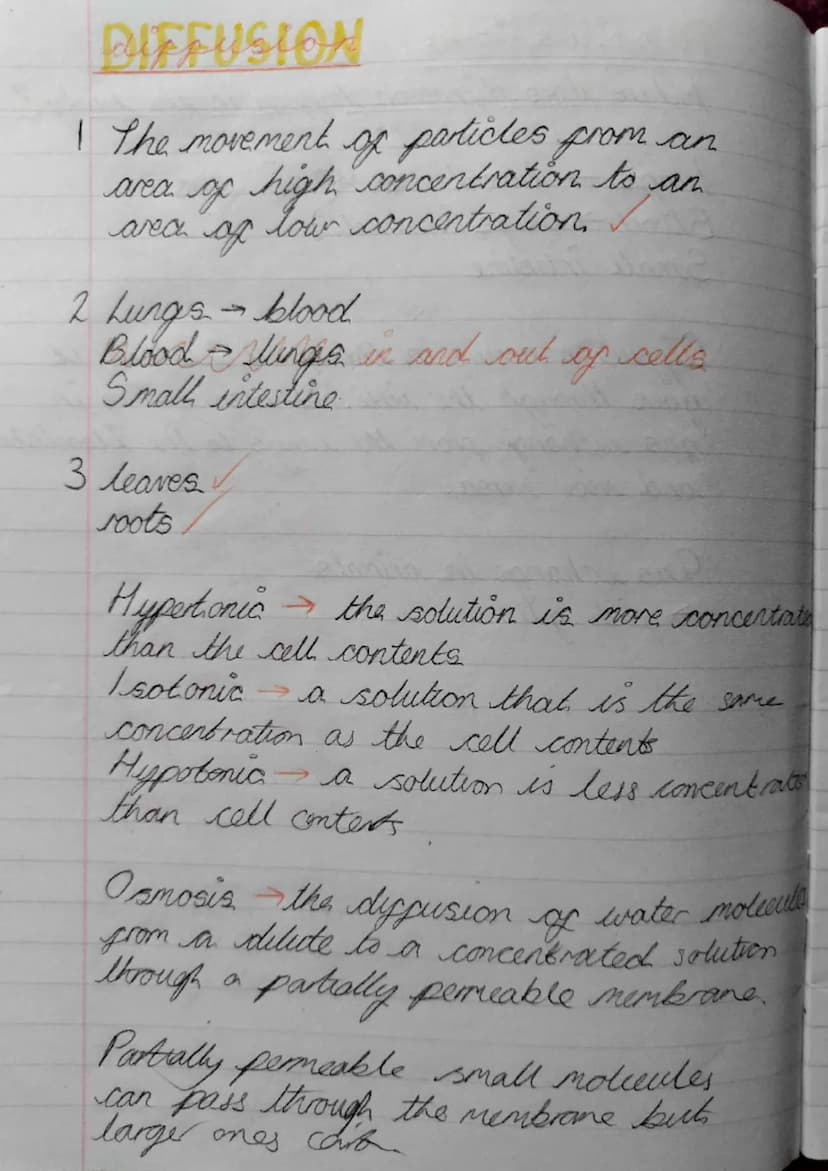 DIFFUSION
diffusion
1 The movement of particles from an
area of high concentration to an
area of low concentration. ✓
2 Lungs → blood
Blood → lungs in and out of cells
Small intestine
3 leaves ✓
roots ✓
Hypertonic → the solution is more concentrate
than the cell contents
Isotonic → a solution that is the same
concentration as the cell contents
Hypotonic → a solution is less concentrate
than cell contents.
Osmosis → the diffusion of water molecules
from a dilute to a concentrated solution
through a partially permeable membrane.
Partially permeable small molecules
can pass through the membrane but
larger ones can't